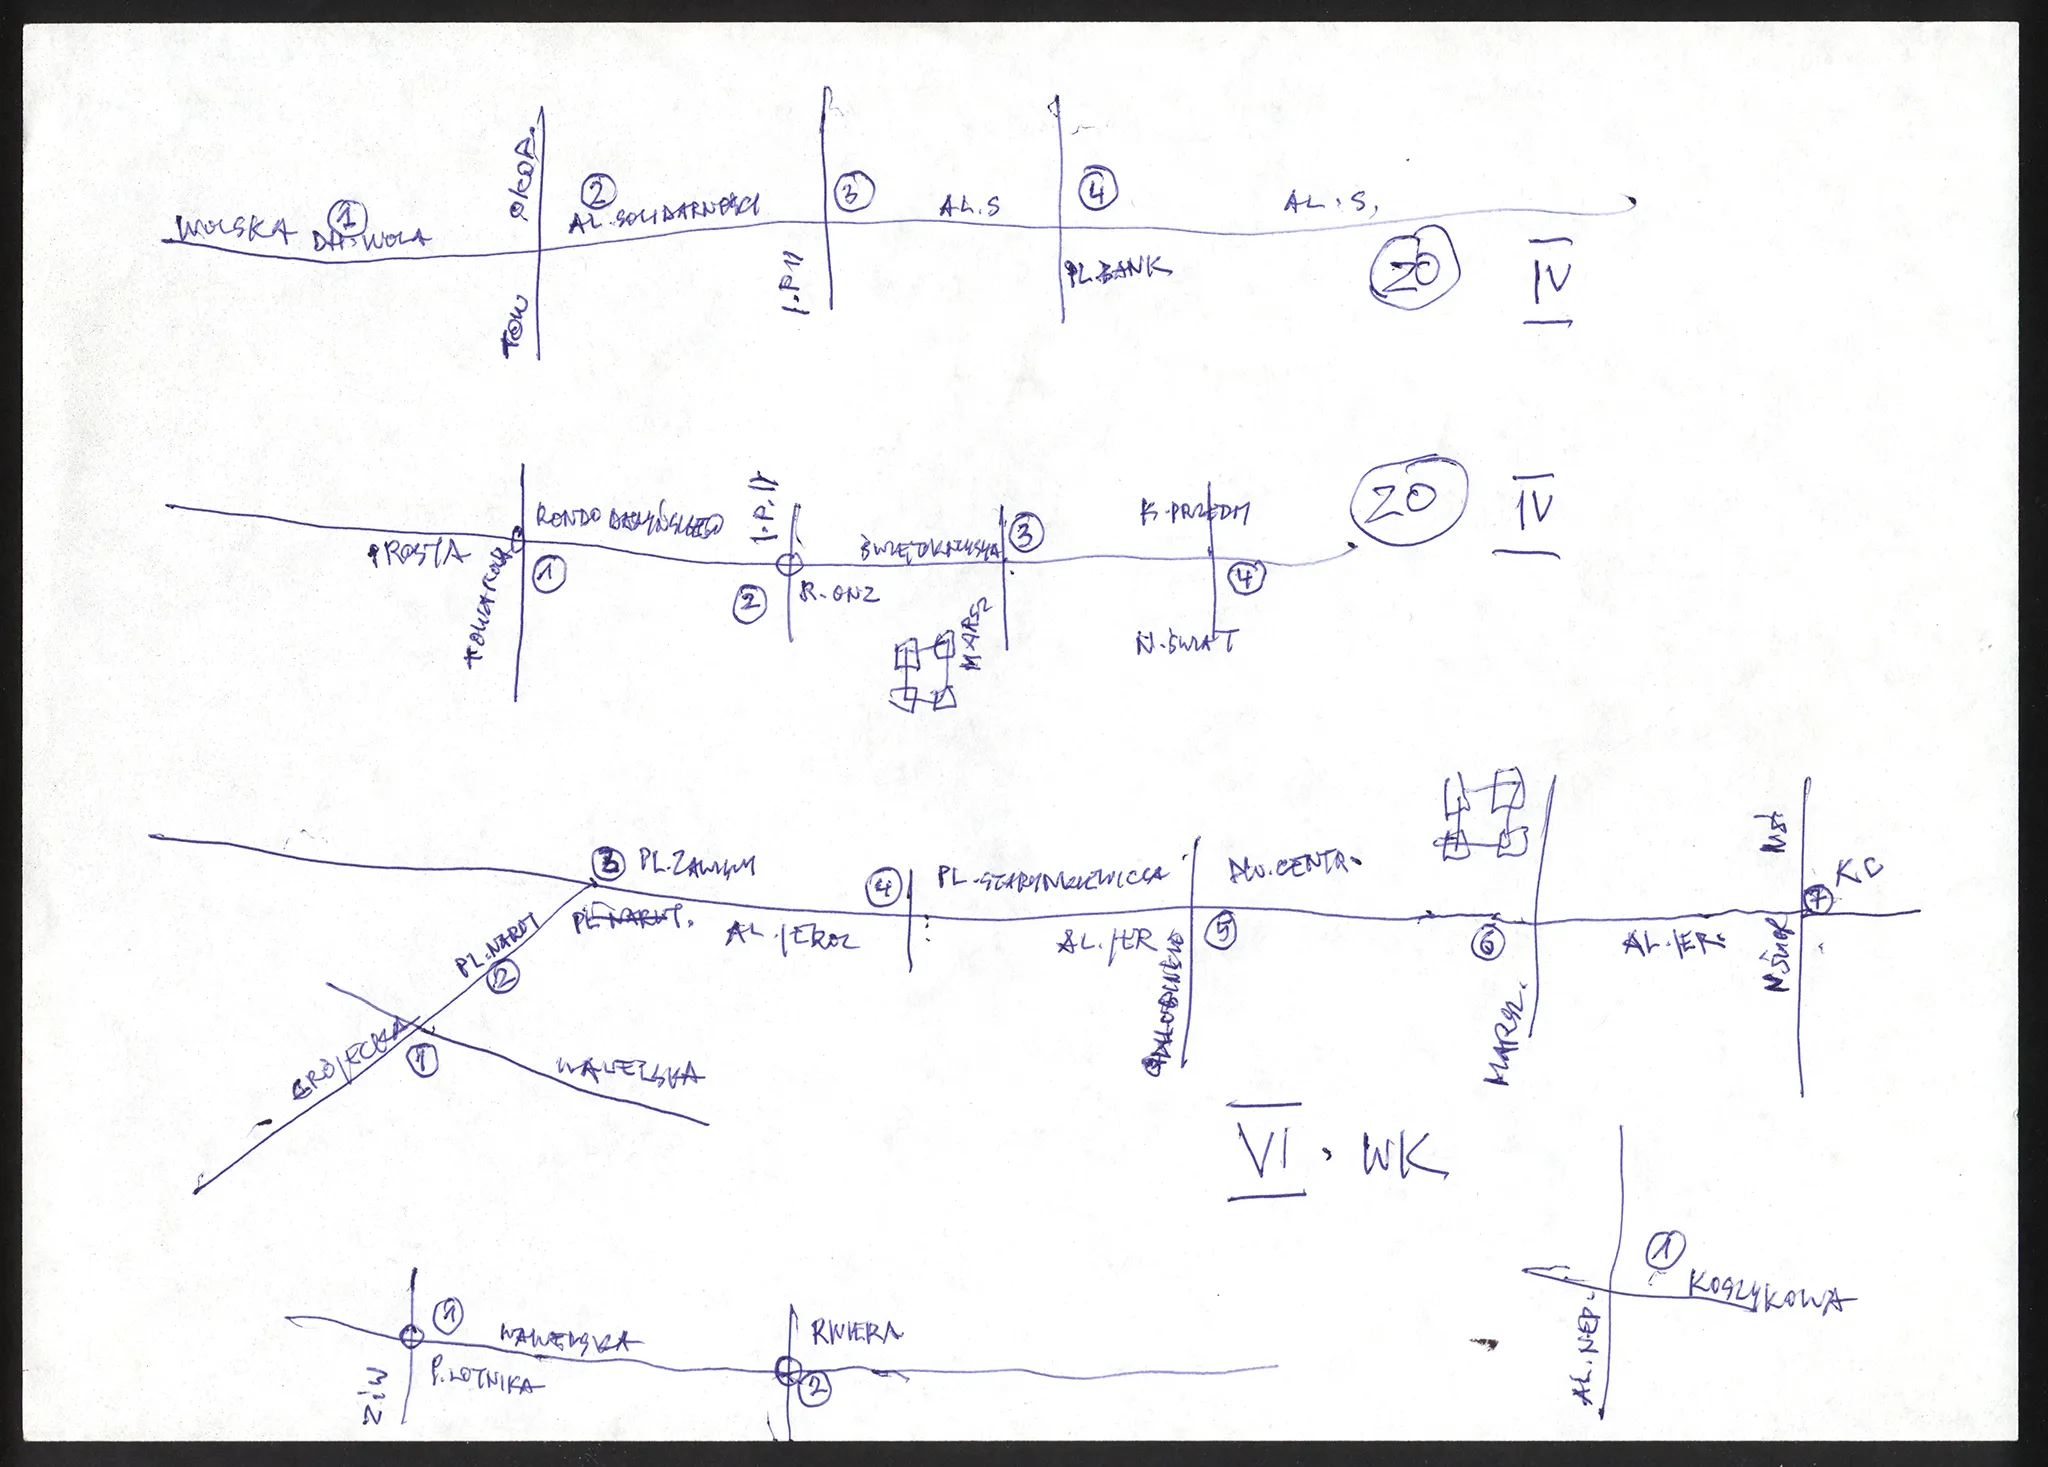 OKOP.
WOLSKA ①
DH. WOLA
②
AL. SOLIDARNOŚCI
③
AL. S
④
AL. S.
TOW
J.P.II
PL. BANK
ZO
IV
PROSTA
TOWAROWA
RONDO DASZYŃSKIEGO
①
J.P.II
②
R. ONZ
ŚWIĘTOKRZYSKA
③
MARSZ
K. PRZEDM
④
N. ŚWIAT
ZO
IV
③ PL. ZAWISZY
PL. NARUT.
PL. NARUT
②
GRÓJECKA
①
WAWELSKA
AL. JEROZ
④
PL. STARYNKIEWICZA
AL. JER
DW. CENTR.
⑤
⑥
MARSZ.
AL. JER.
⑦
KC
VI. WK
ZIW
①
WAWELSKA
P. LOTNIKA
RIVIERA
②
AL. NIEP.
①
KOSZYKOWA